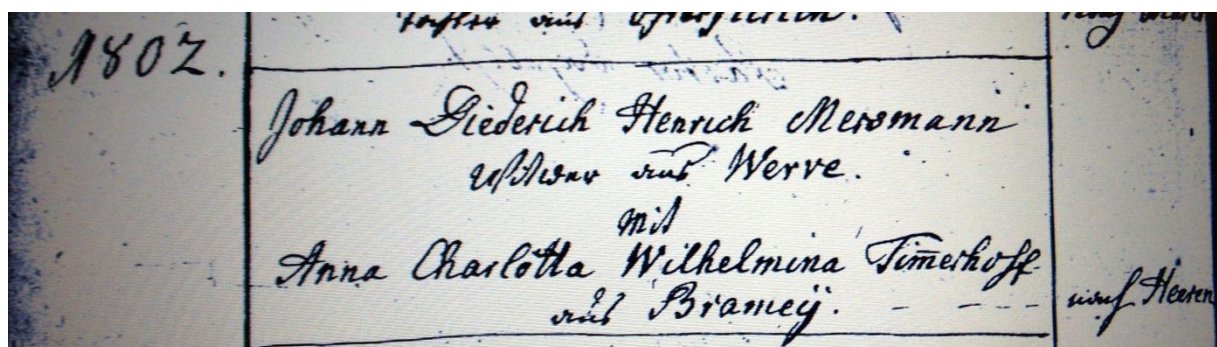 tochter aus
1802.
Johann Diederich Henrich Mersmann
Wittwer aus Werve.
mit
Anna Charlotta Wilhelmina Tim̅erhoff
aus Brameÿ. - - - nach Heeren